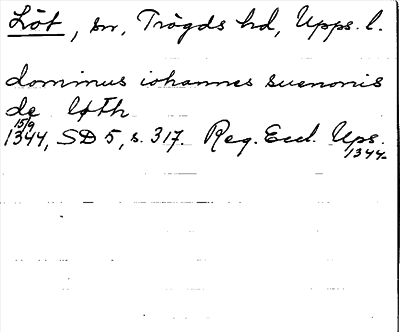 Löt, sn, Trögds hd, Upps. l.
dominus iohannes suenonis
de løth
15/9
1344, SD 5, s. 317. Reg. Eccl. Ups.
1344.